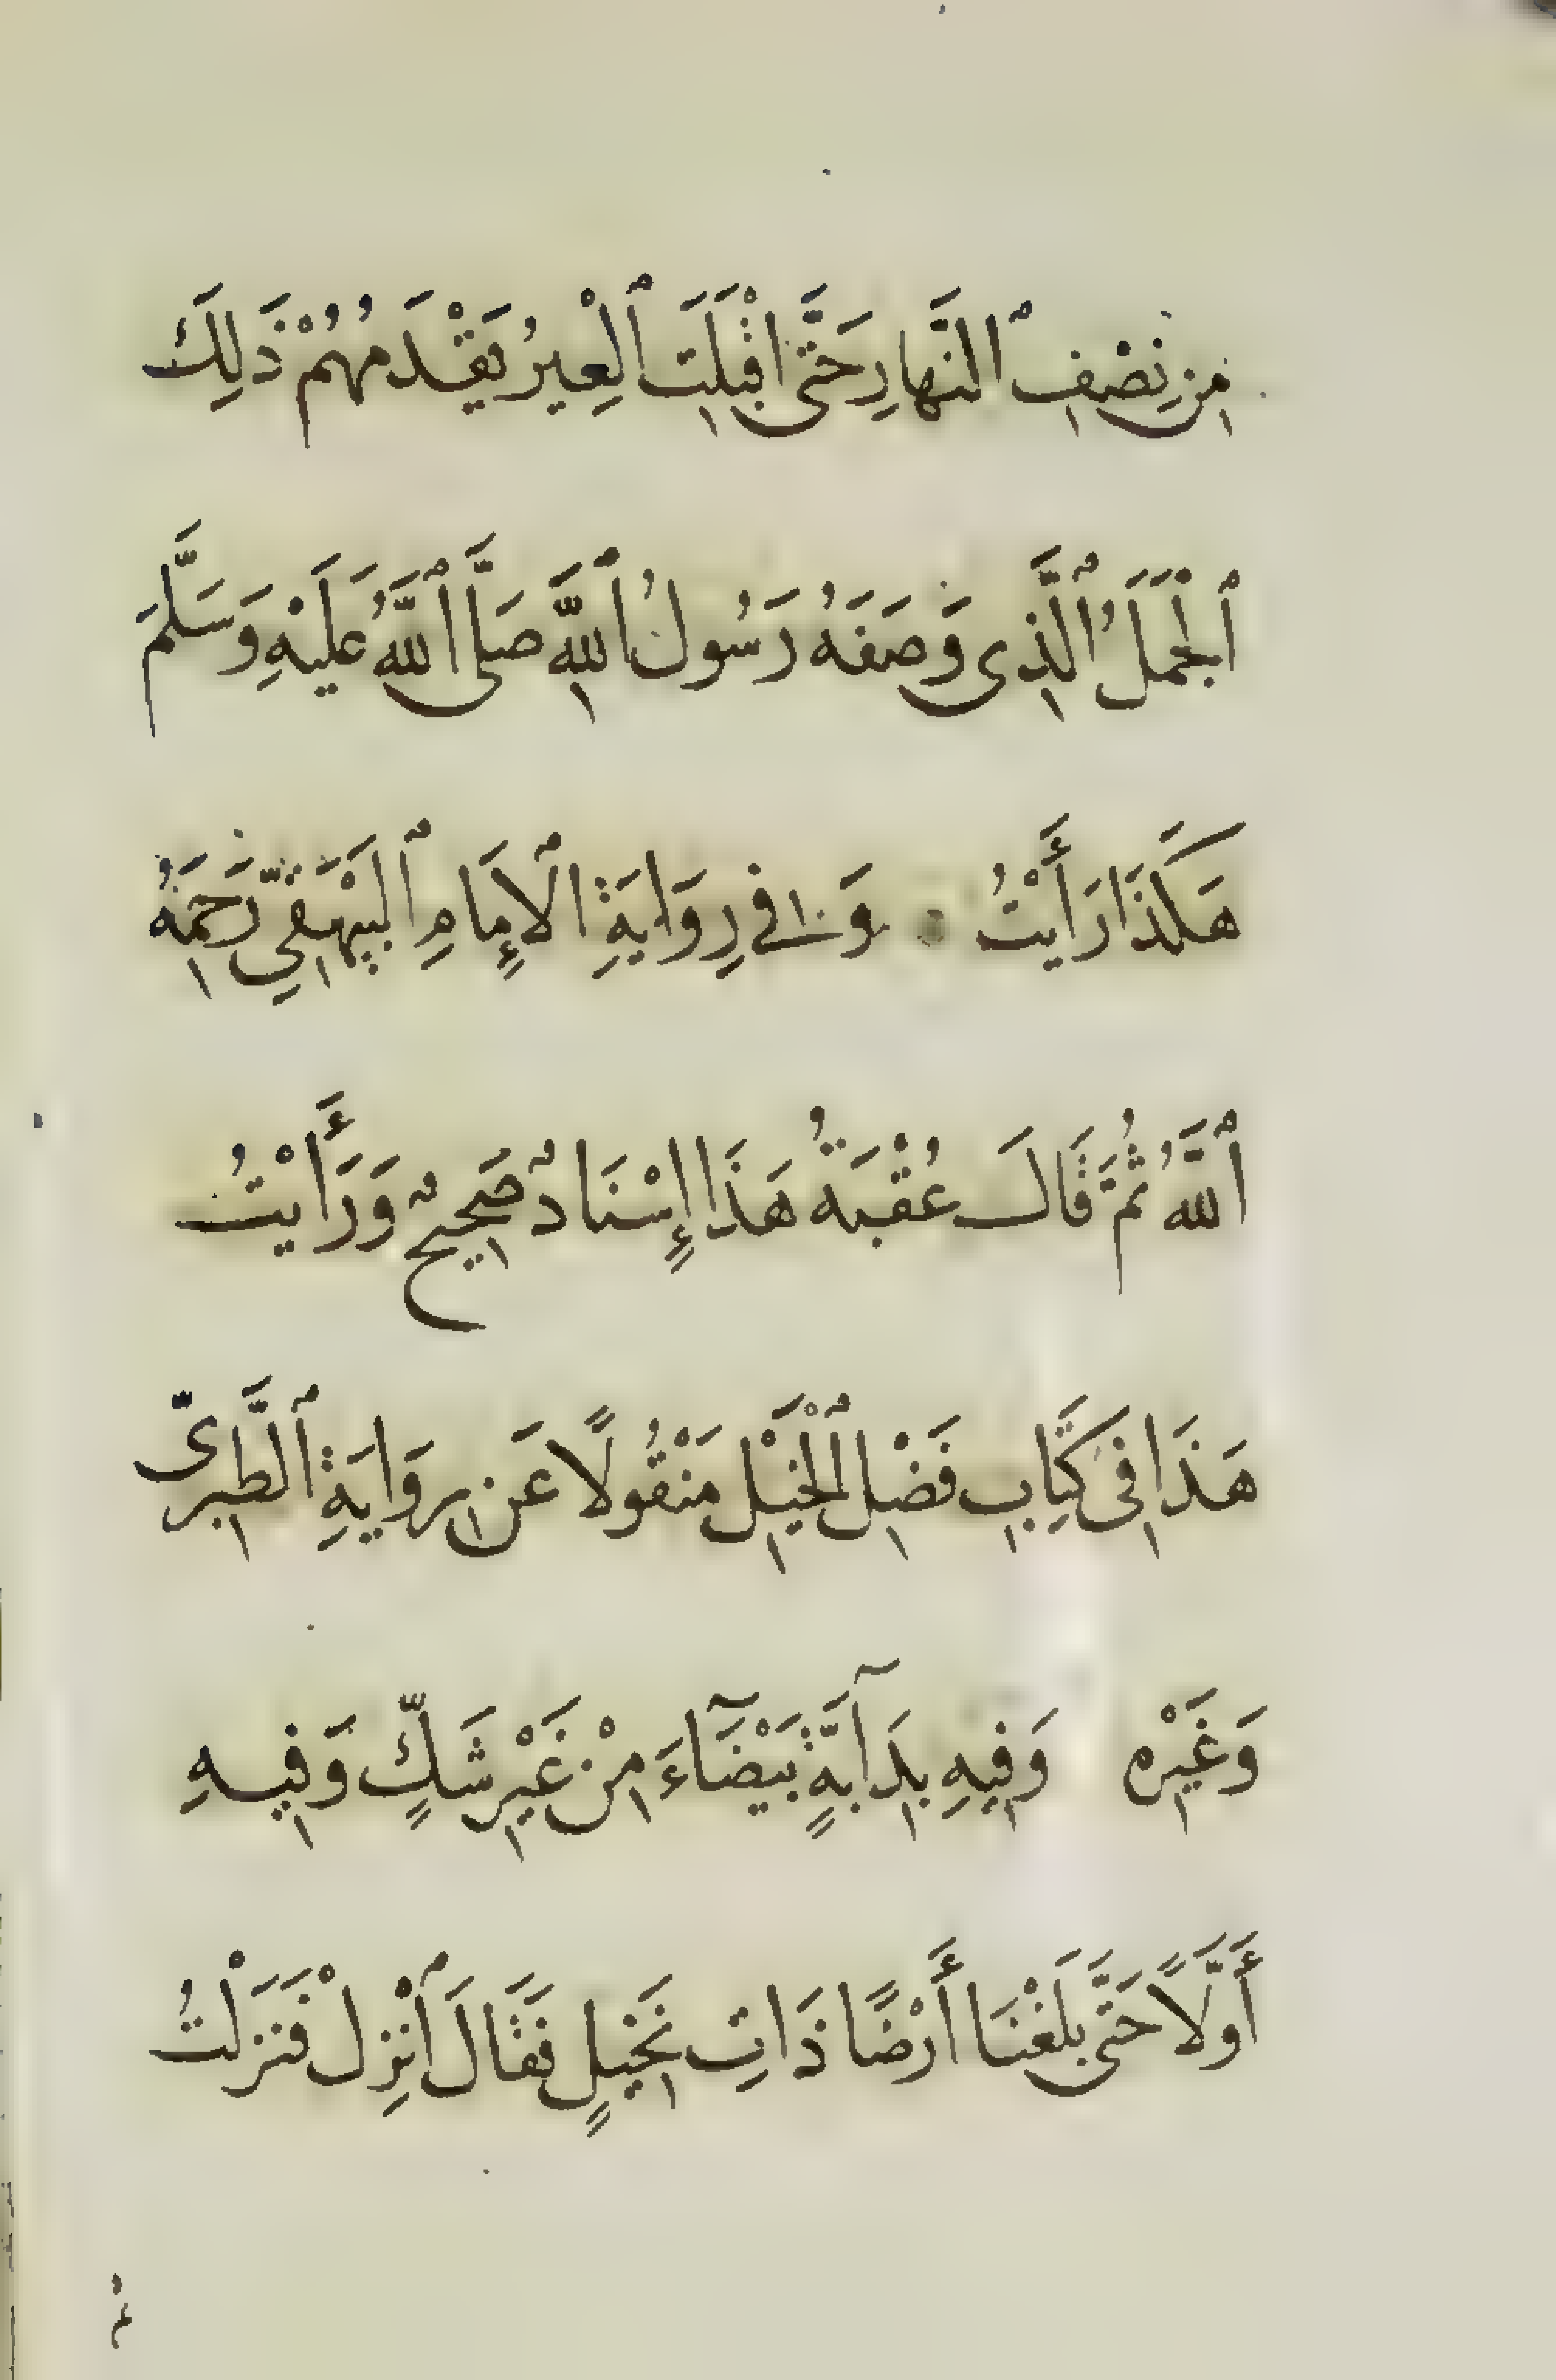 مِن نِصْفِ ٱلنَّهارِ حَتَّى اقْبَلَتِ ٱلْعِيرُ يَقْدَمُهُمْ ذَلِكَ
ٱلْجَمَلُ ٱلَّذِى وَصَفَهُ رَسُولُ ٱللَّهِ صَلَّى ٱللَّهُ عَلَيْهِ وَسَلَّمَ
هَكَذَا رَأَيْتُ وَ فِي رِوَايَةِ ٱلْإِمَامِ ٱلْبَيْهَقِيِّ رَحِمَهُ
ٱللَّهُ ثُمَّ قَالَ عُقْبَةُ هَذَا إِسْنَادٌ صَحِيحٌ وَرَأَيْتُ
هَذَا فِى كِتَابِ فَضْلِ ٱلْخَيْلِ مَنْقُولًا عَنِ رِوَايَةِ ٱلطَّبَرِىّ
وَغَيْرِه وَفِيهِ بِدَآبَّةٍ بَيْضَآءَ مِنْ غَيْرِ شَكٍّ وَفِيهِ
أَوَّلًا حَتَّى بَلَغْنَا أَرْضًا ذَاتِ نَخِيلٍ فَقَالَ ٱنْزِلْ فَنَزَلْتُ